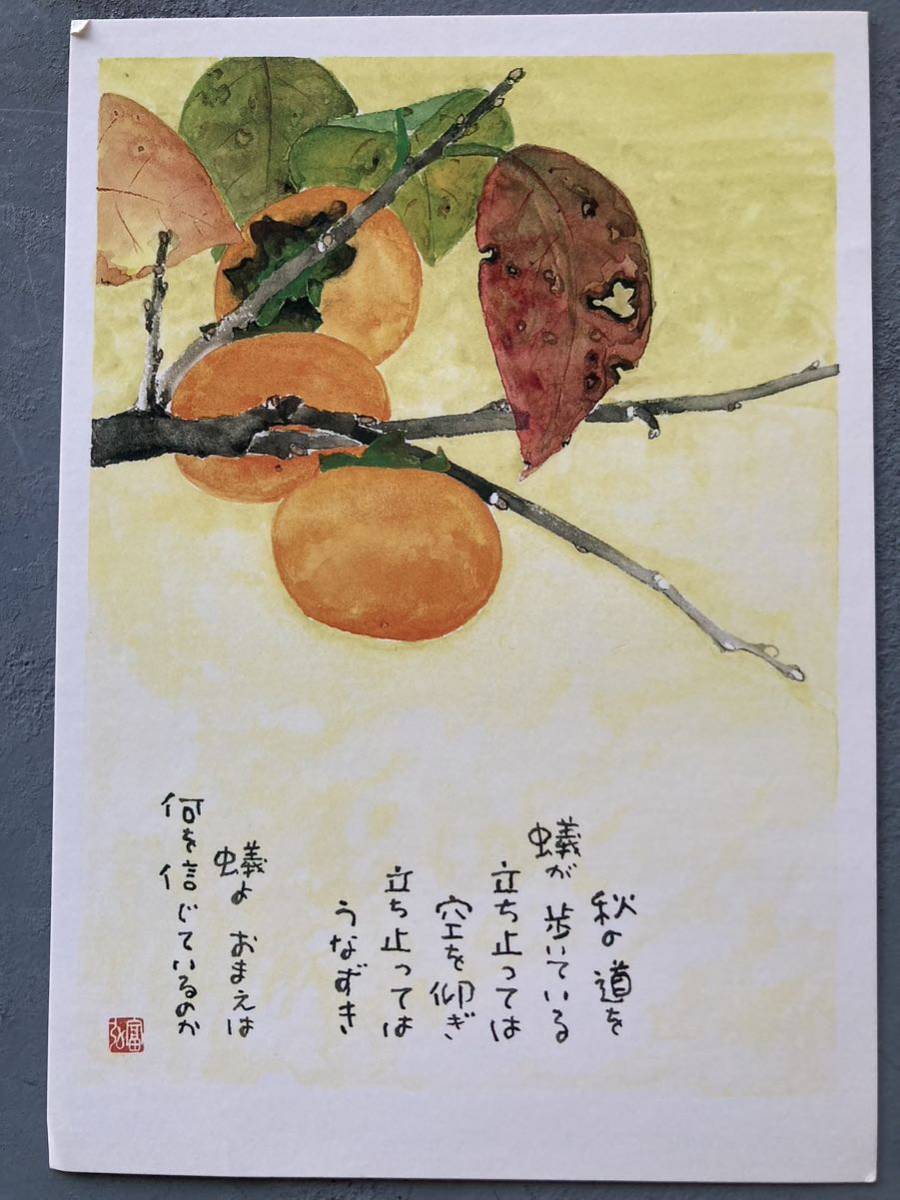 秋の道を
蟻が 歩いている
立ち止っては
空を仰ぎ
立ち止っては
うなずき
蟻よ おまえは
何を信じているのか
富弘